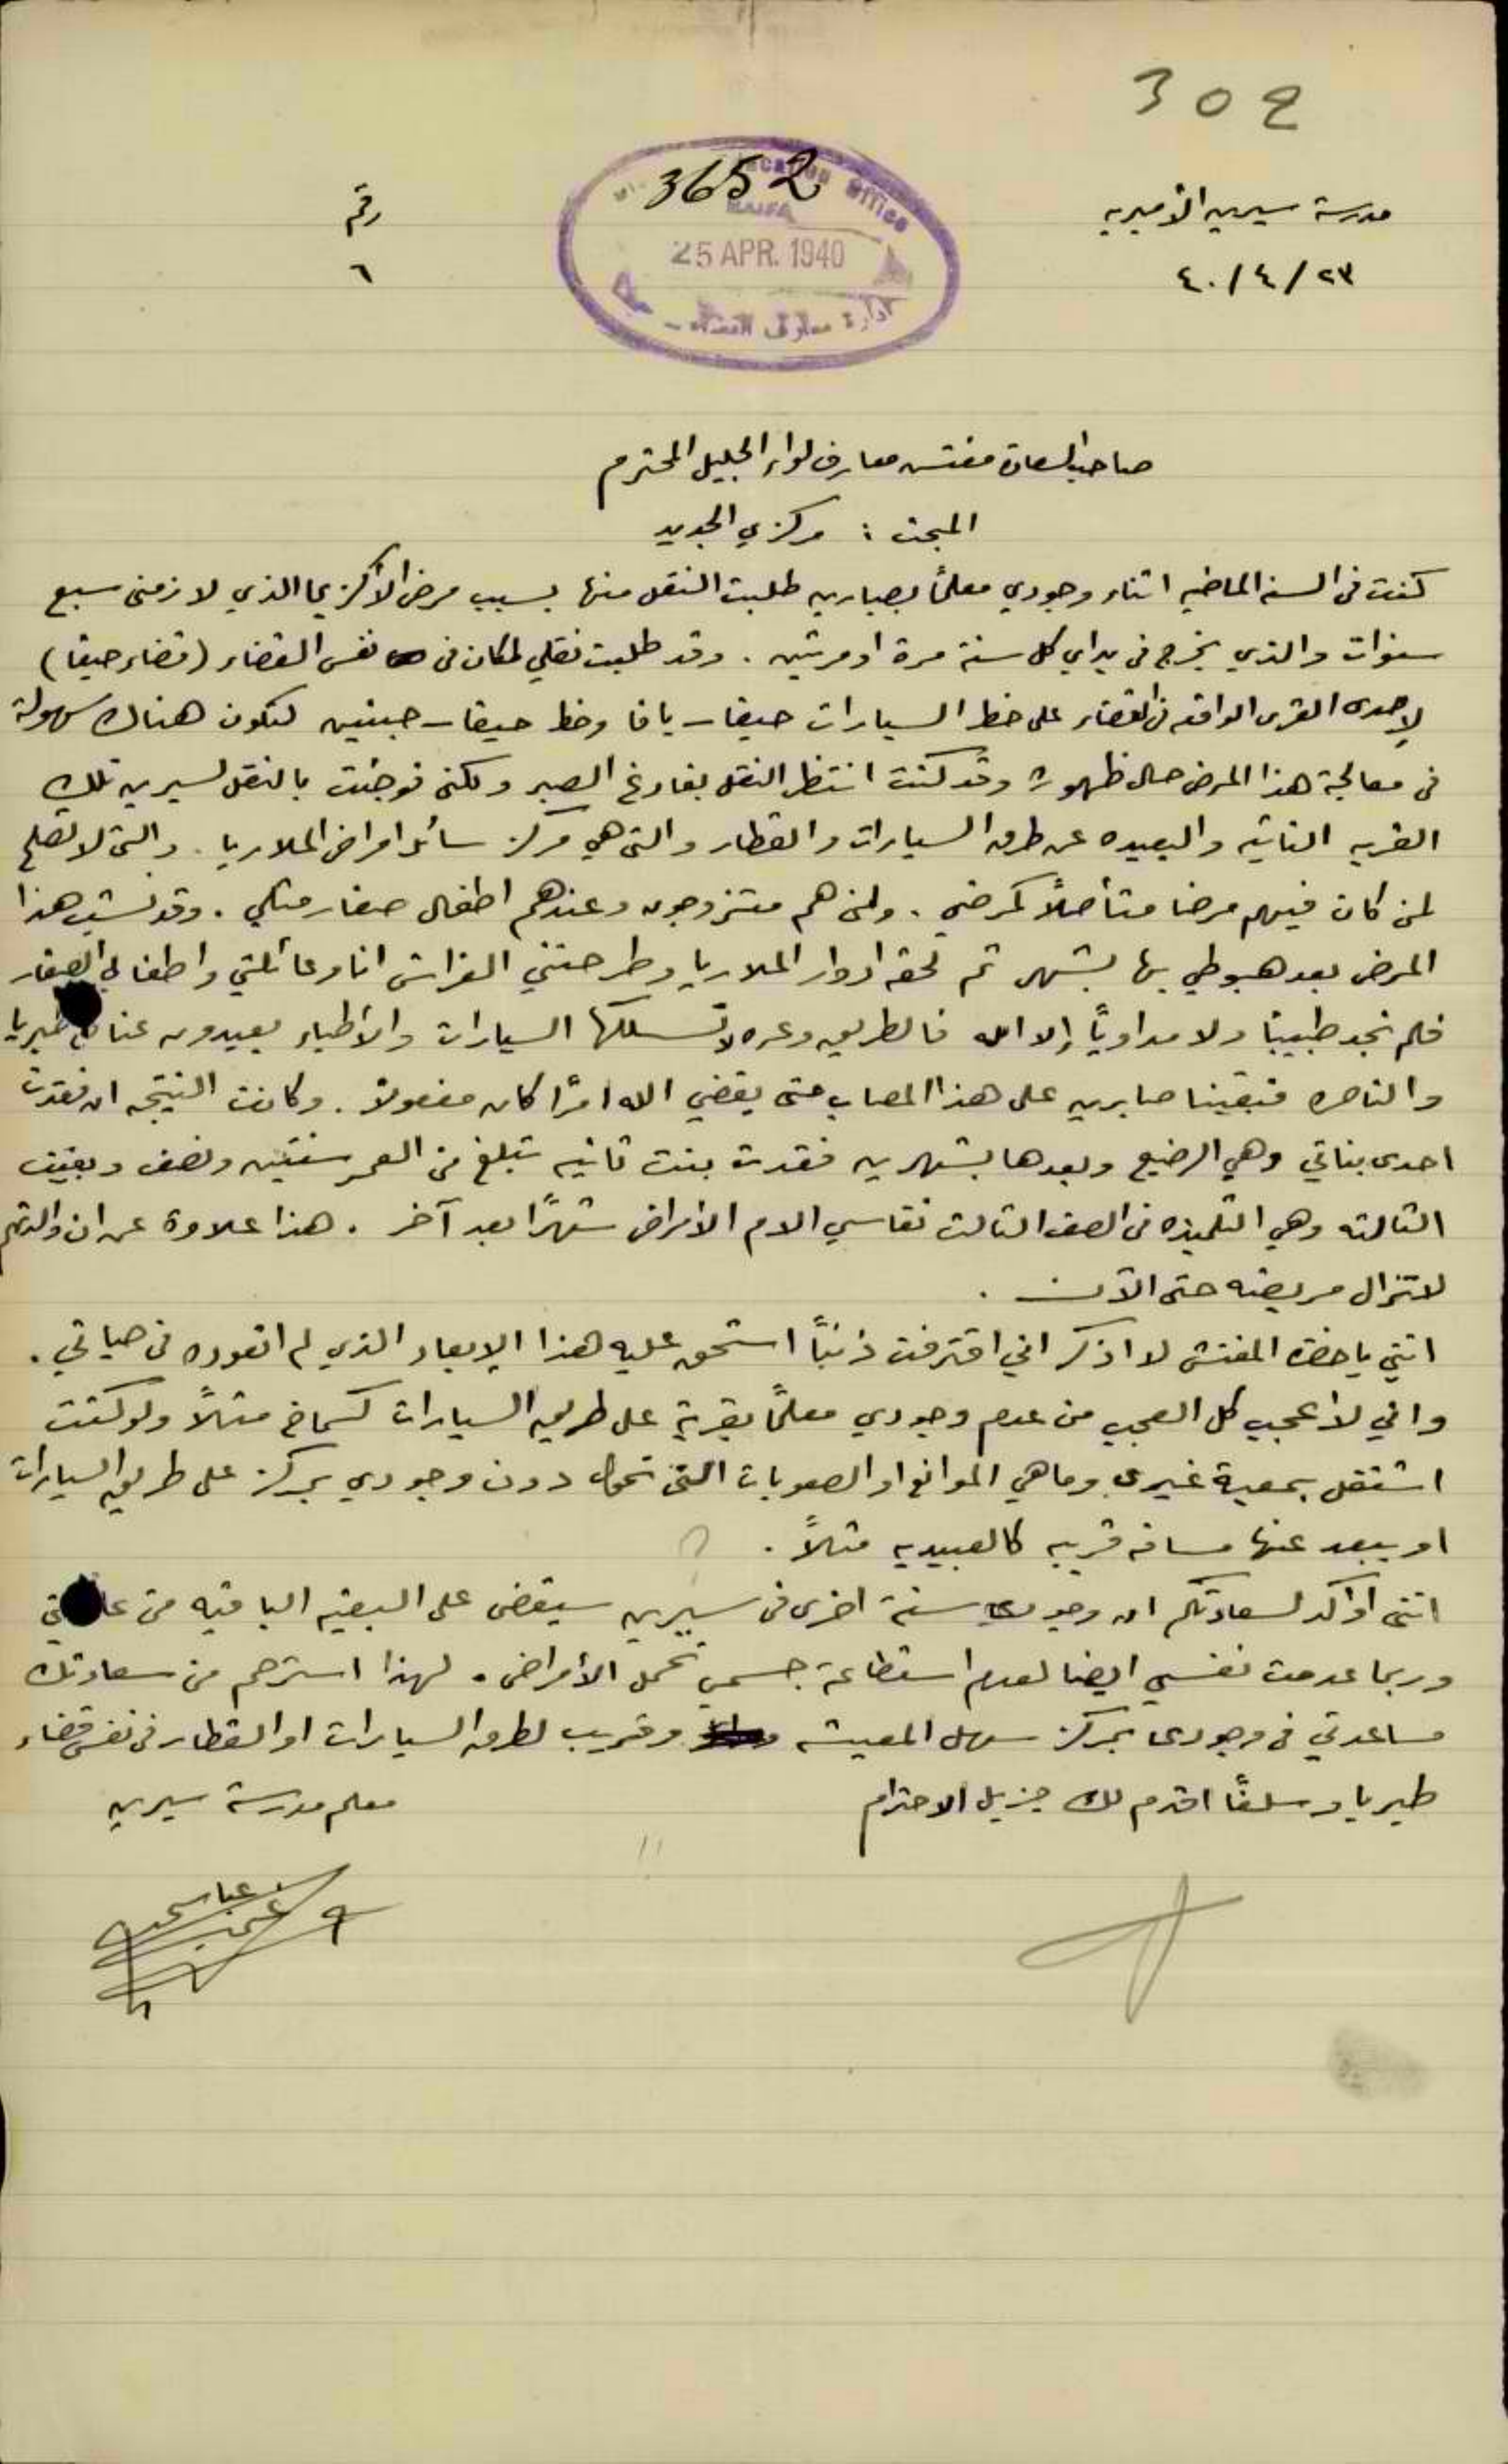 302
مدرسة سيرين الأميريه
٢٣/٤/٤٠
رقم
٦
3652
Education Office
HAIFA
25 APR. 1940
ادارة معارف القضاء
صاحب السعادة مفتش معارف لواء الجليل المحترم
المبحث : مركزي الجديد
كنت في السنه الماضيه اثناء وجودي معلمًا بصبارين طلبت النقل منها بسبب مرض الأكزيما الذي لازمني سبع
سنوات والذي يخرج في يداي كل سنة مرة او مرتين . وقد طلبت نقلي لمكان في نفس القضاء (قضاء حيفا)
لإحدى القرى الواقعه في القضاء على خط السيارات حيفا – يافا وخط حيفا – جينين لتكون هناك سهولة
في معالجة هذا المرض حال ظهوره وقد كنت انتظر النقل بفارغ الصبر ولكني فوجئت بالنقل لسيرين تلك
القريه النائيه والبعيده عن طرق السيارات والقطار والتي هي مركز سائر امراض الملاريا . والتي لا تصلح
لمن كان فيهم مرضا متأصلاً كمرضي . ولمن هم متزوجون وعندهم اطفال صغار مثلي . وقد نشب هذا
المرض بعد هبوطي بها بشهر ثم لحقه ادوار الملاريا وطرحتني الفراش انا وعائلتي واطفالي الصغار
فلم نجد طبيبًا ولا مداويًا إلا الله فالطريق وعره لا تسلكها السيارات والأطباء بعيدون عنا في طبريا
والناصره فبقينا صابرين على هذا المصاب حتى يقضي الله امرًا كان مفعولا . وكانت النتيجه ان فقدت
احدى بناتي وهي الرضيع وبعدها بشهرين فقدت بنت ثانيه تبلغ من العمر سنتين ونصف وبقيت
الثالثه وهي التلميذه في الصف الثالث تقاسي الام الأمراض شهرًا بعد آخر . هذا علاوة عن ان والدتهم
لا تزال مريضه حتى الآن .
انني يا حضرة المفتش لا اذكر اني اقترفت ذنبًا استحق عليه هذا الإبعاد الذي لم اتعوده في حياتي .
واني لأعجب كل العجب من عدم وجودي معلمًا بقرية على طريق السيارات كسماخ مثلاً ولو كنت
اشتغل بمعية غيري وما هي الموانع او الصعوبات التي تحول دون وجودي بمركز على طريق السيارات
او يبعد عنها مسافه قريبه كالعبيديه مثلاً .
انني أؤكد لسعادتكم ان وجودي سنة اخرى في سيرين سيقضي على البقيه الباقيه من عائلتي
وربما عدمت نفسي ايضا لعدم استطاعة جسمي تحمل الأمراض . لهذا استرحم من سعادتك
مساعدتي في وجودي بمركز سهل المعيشه وقريب لطرق السيارات او القطار في نفس قضاء
طبريا وسلفًا اقدم لك جزيل الاحترام
معلم مدرسة سيرين